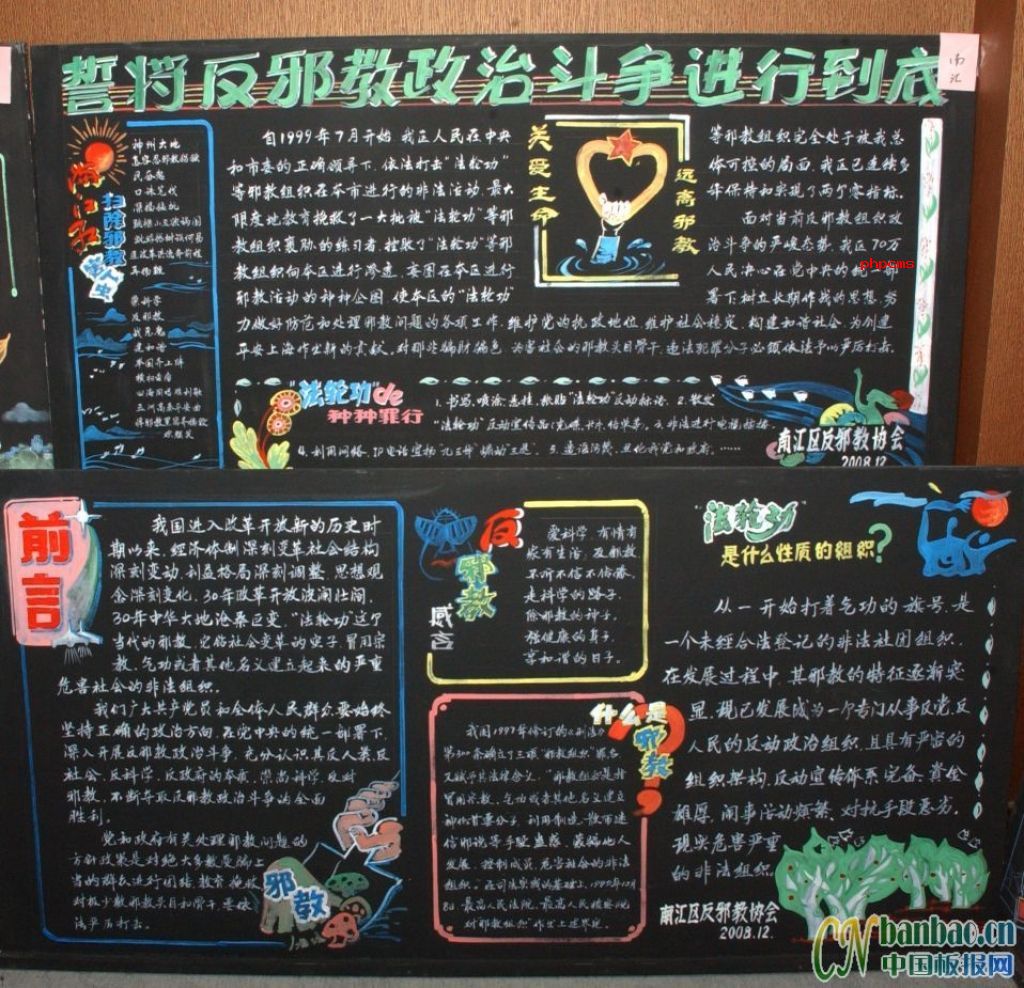 誓将反邪教政治斗争进行到底
南汇
神州大地
民奋起
口诛笔伐
崇科学
反邪教
建和谐
扫除邪教
自1999年7月开始,我区人民在中央
和市委的正确领导下,依法打击"法轮功"
等邪教组织在本市进行的非法活动,最大
限度地教育挽救了一大批被"法轮功"等邪
教组织裹胁的练习者,挫败了"法轮功"等邪
教组织向本区进行渗透,妄图在本区进行
邪教活动的种种企图,使本区的"法轮功"
关爱生命
远离邪教
等邪教组织完全处于被我总
体可控的局面,我区已连续多
年保持和实现了两个零指标。
面对当前反邪教组织政
治斗争的严峻态势,我区70万
人民决心在党中央的统一部
phpcms
署下,树立长期作战的思想,努
力做好防范和处理邪教问题的各项工作,维护党的执政地位,维护社会稳定,构建和谐社会,为创建
平安上海作出新的贡献。对那些骗财骗色,为害社会的邪教头目骨干,违法犯罪分子必须依法予以严厉打击。
"法轮功"de
种种罪行
1.书写、喷涂、悬挂、张贴"法轮功"反动标语。2.散发
"法轮功"反动宣传品(光碟、书本、传单等)。3.非法进行电话
4.利用网络、IP电话宣扬"九评""三退"。5.造谣污蔑、丑化我党和政府。……
南汇区反邪教协会
2008.12.
前言
我国进入改革开放新的历史时
期以来,经济体制深刻变革,社会结构
深刻变动,利益格局深刻调整,思想观
念深刻变化。30年改革开放波澜壮阔,
30年中华大地沧桑巨变。"法轮功"这个
当代的邪教,它借社会变革的空子,冒用宗
教、气功或者其他名义建立起来的严重
危害社会的非法组织。
我们广大共产党员和全体人民群众,要始终
坚持正确的政治方向,在党中央的统一部署下,
深入开展反邪教政治斗争,充分认识其反人类、反
社会、反科学、反政府的本质,崇尚科学,反对
邪教,不断夺取反邪教政治斗争的全面
胜利。
党和政府有关处理邪教问题的
方针政策是对绝大多数受骗上
当的群众进行团结、教育、挽救
对极少数邪教头目和骨干,要依
法严厉打击。
邪教
反邪教
感言
爱科学,有情有
家有生活,反邪教
不听不信不传播,
走科学的路子,
除邪教的种子,
强健康的身子,
享和谐的日子。
什么是邪教?
我国1997年修订的《刑法》
第300条确立了三项"邪教组织"罪名,
又赋予其法律含义。"邪教组织是指
冒用宗教、气功或者其他名义建立,
神化首要分子,利用制造、散布迷
信邪说等手段蛊惑、蒙骗他人,
发展、控制成员,危害社会的非法
组织。"在司法实践的基础上,1999年10月
8日,最高人民法院、最高人民检察院
对"邪教组织"作出上述界定。
"法轮功"
是什么性质的组织?
从一开始打着气功的旗号,是
一个未经合法登记的非法社团组织,
在发展过程中,其邪教的特征逐渐突
显,现已发展成为一个专门从事反党、反
人民的反动政治组织,且具有严密的
组织架构,反动宣传体系完备,资金
雄厚,闹事活动频繁,对抗手段恶劣,
现实危害严重
的非法组织。
南汇区反邪教协会
2008.12.
CN banbao.cn
中国板报网